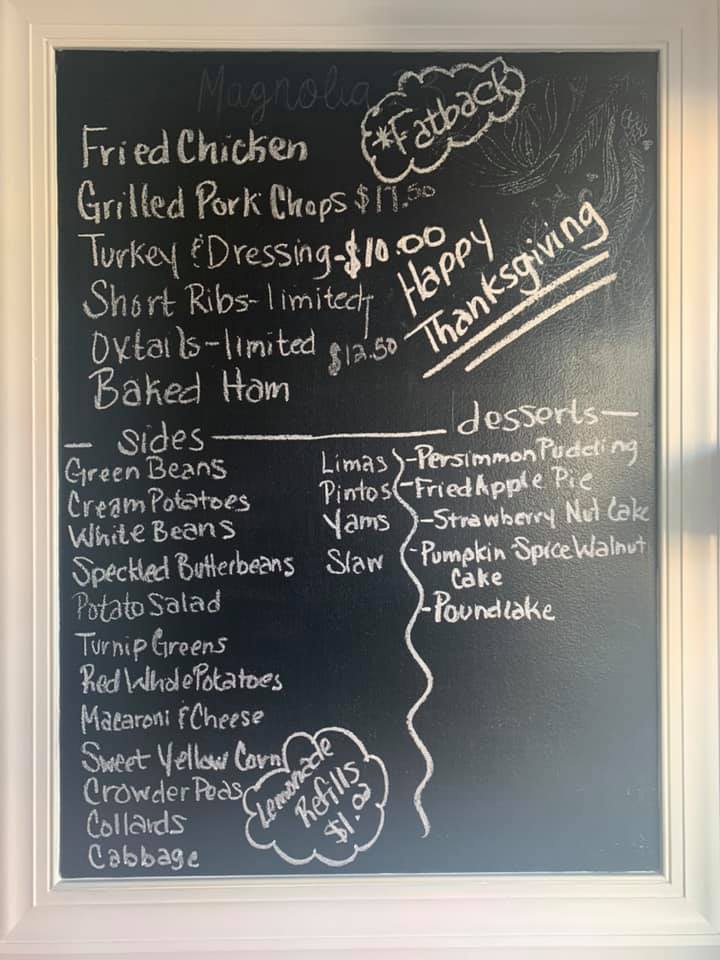 Magnolia
*Fatback
Fried Chicken
Grilled Pork Chops $17.50
Turkey & Dressing-$10.00
Short Ribs-limited
Oxtails-limited $12.50
Baked Ham
Happy
Thanksgiving
— sides —
Green Beans
Cream Potatoes
White Beans
Speckled Butterbeans
Potato Salad
Turnip Greens
Red Whole Potatoes
Macaroni & Cheese
Sweet Yellow Corn
Crowder Peas
Collards
Cabbage
Limas
Pintos
Yams
Slaw
desserts—
-Persimmon Pudding
-Fried Apple Pie
-Strawberry Nut Cake
-Pumpkin Spice Walnut
Cake
-Pound Cake
Lemonade
Refills